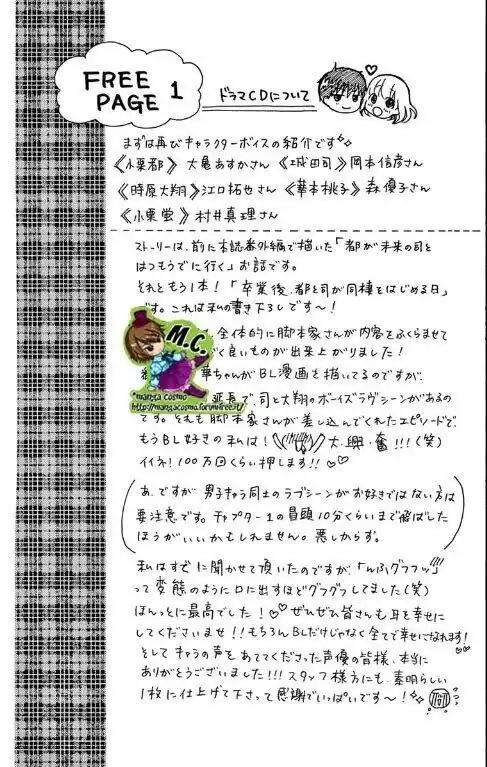 FREE PAGE 1
ドラマCDについて
まずは再びキャラクターボイスの紹介です
《小栗都》大亀あすかさん《成田司》岡本信彦さん
《時原大翔》江口拓也さん《華本桃子》森優子さん
《小栗蛍》村井真理さん
ストーリーは、前に本誌番外編で描いた「都が未来の司と
はつもうでに行く」お話です。
それともう1本!「卒業後、都と司が同棲をはじめる日」
です。これは私の書き下ろしです〜!
全体的に脚本家さんが内容をふくらませて
良いものが出来上がりました!
華ちゃんがBL漫画を描いてるのですが、
延長で、司と大翔のボーイズラブシーンがあるの
です。それも脚本家さんが差し込んでくれたエピソードで、
もうBL好きの私は! 大・興・奮!!!(笑)
イイネ!100万回くらい押します!!♡♡
あ、ですが男子キャラ同士のラブシーンがお好きではない方は
要注意です。チャプター1の冒頭10分くらいまで飛ばした
ほうがいいかもしれません。悪しからず。
私はすでに聞かせて頂いたのですが「んふグフフッ」
って変態のように口に出すほどグフグフしてました(笑)
ほんっとに最高でした!♡♡ぜひぜひ皆さんも耳を幸せに
してくださいませ!!もちろんBLだけじゃなく全てで幸せになれます!
そしてキャラの声をあててくださった声優の皆様、本当に
ありがとうございました!!!スタッフ様方にも、素晴らしい
1枚に仕上げて下さって感謝でいっぱいです〜!
M.C.
*manga cosmo*
http://mangacosmo.forumfree.it/